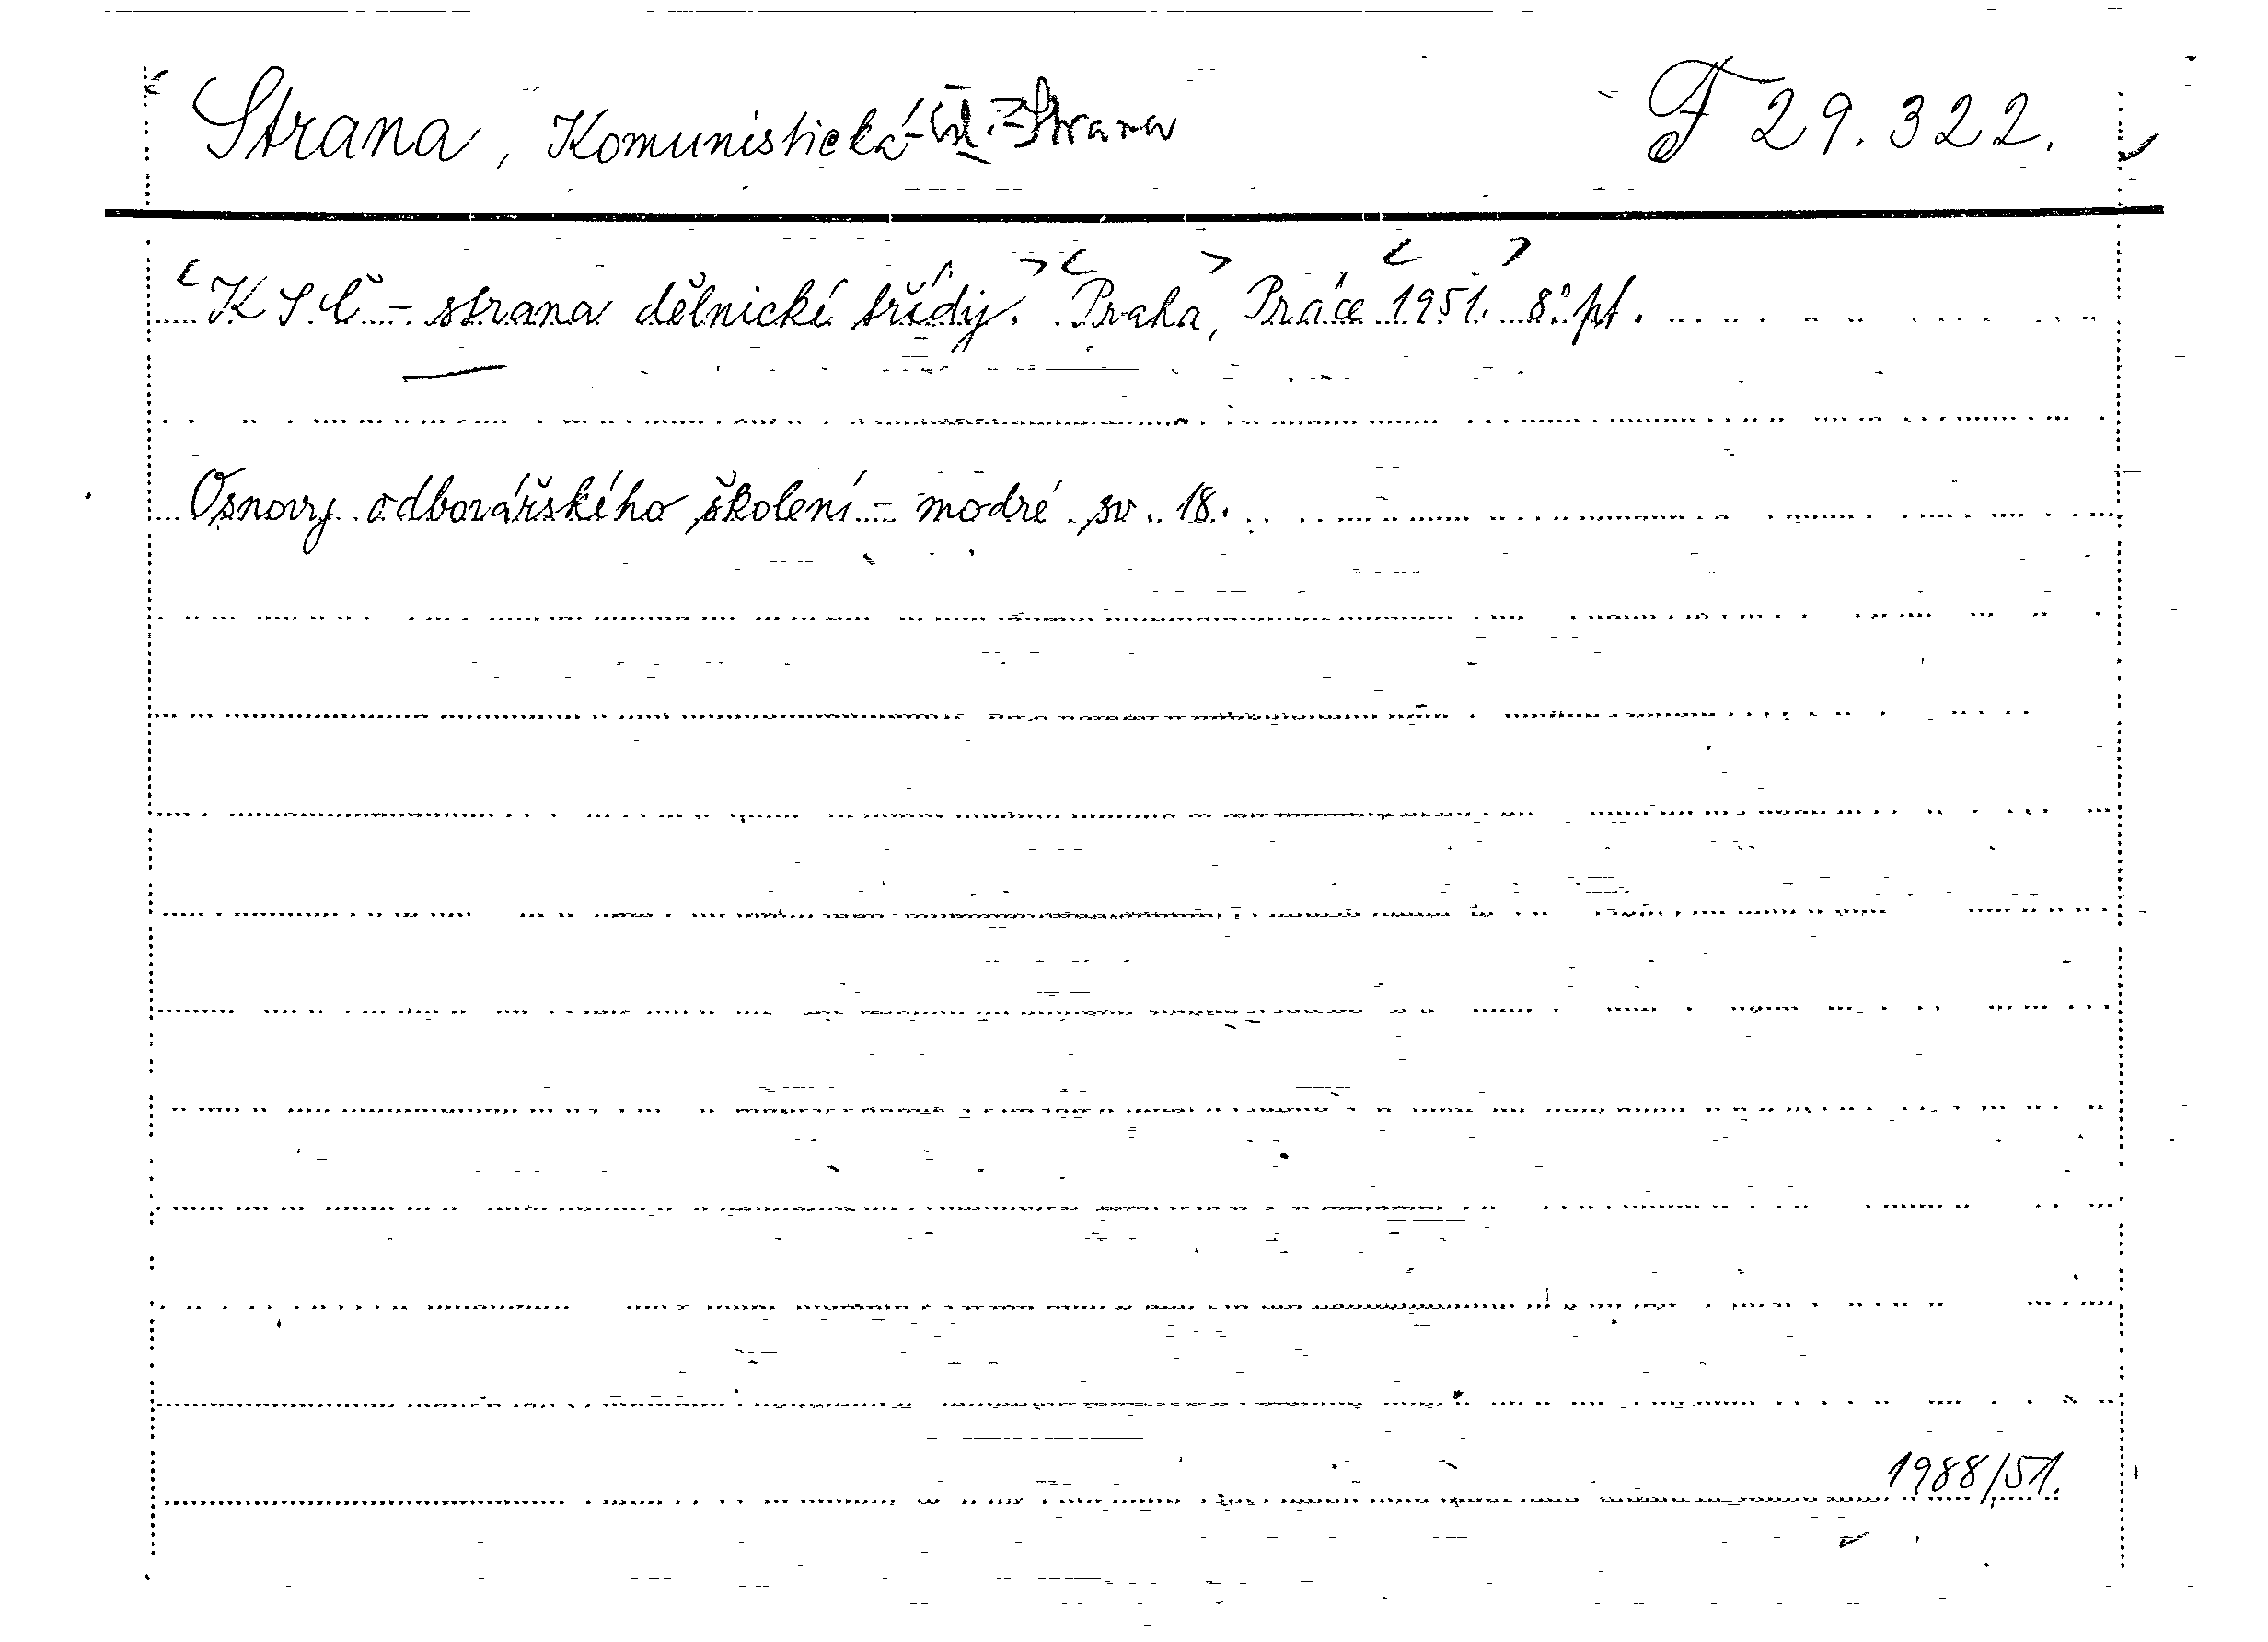 Strana, Komunistická - čsl. - Strana F 29.322.
KSČ - strana dělnické třídy. Praha, Práce 1951. 8° pt.
Osnovy odborářského školení - modré sv. 18.
1988/51.